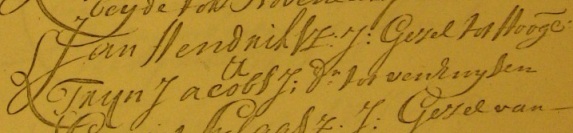 beyde tot
Jan Hendriksz. J: Gesel tot Hooge
Tryn Jacobs J: dr. tot venhuysen
J: Gesel van